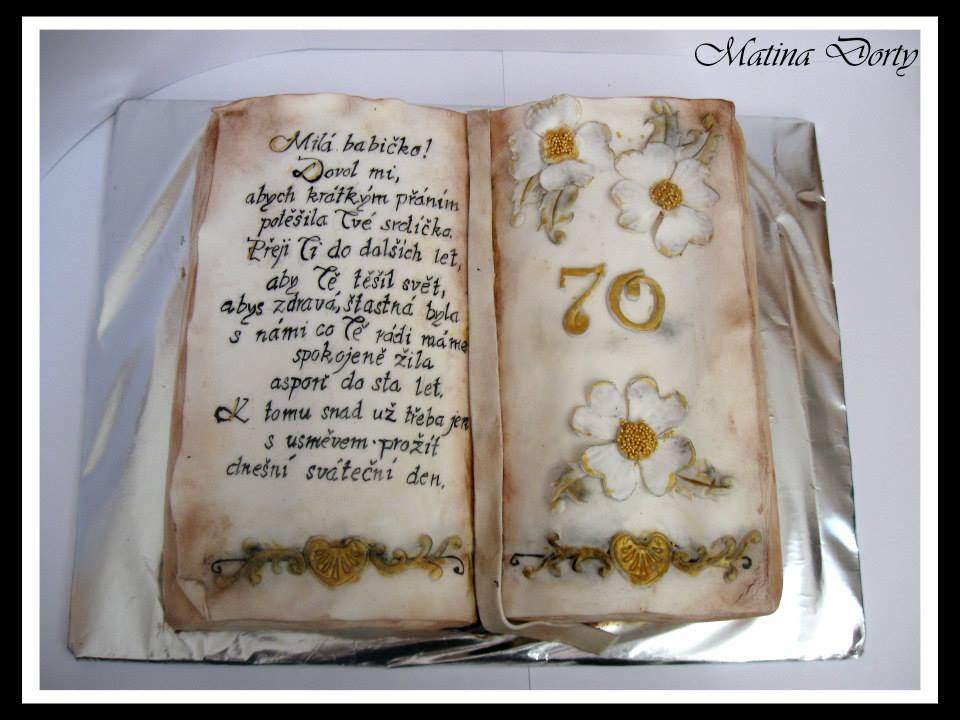 Matina Dorty
Milá babičko!
Dovol mi,
abych krátkým přáním
potěšila Tvé srdíčko.
Přeji Ti do dalších let,
aby Tě těšil svět,
abys zdravá, štastná byla
s námi co Tě rádi máme
spokojeně žila
asponˇ do sta let.
K tomu snad už třeba jen
s usměvem prožít
dnešní sváteční den.
70